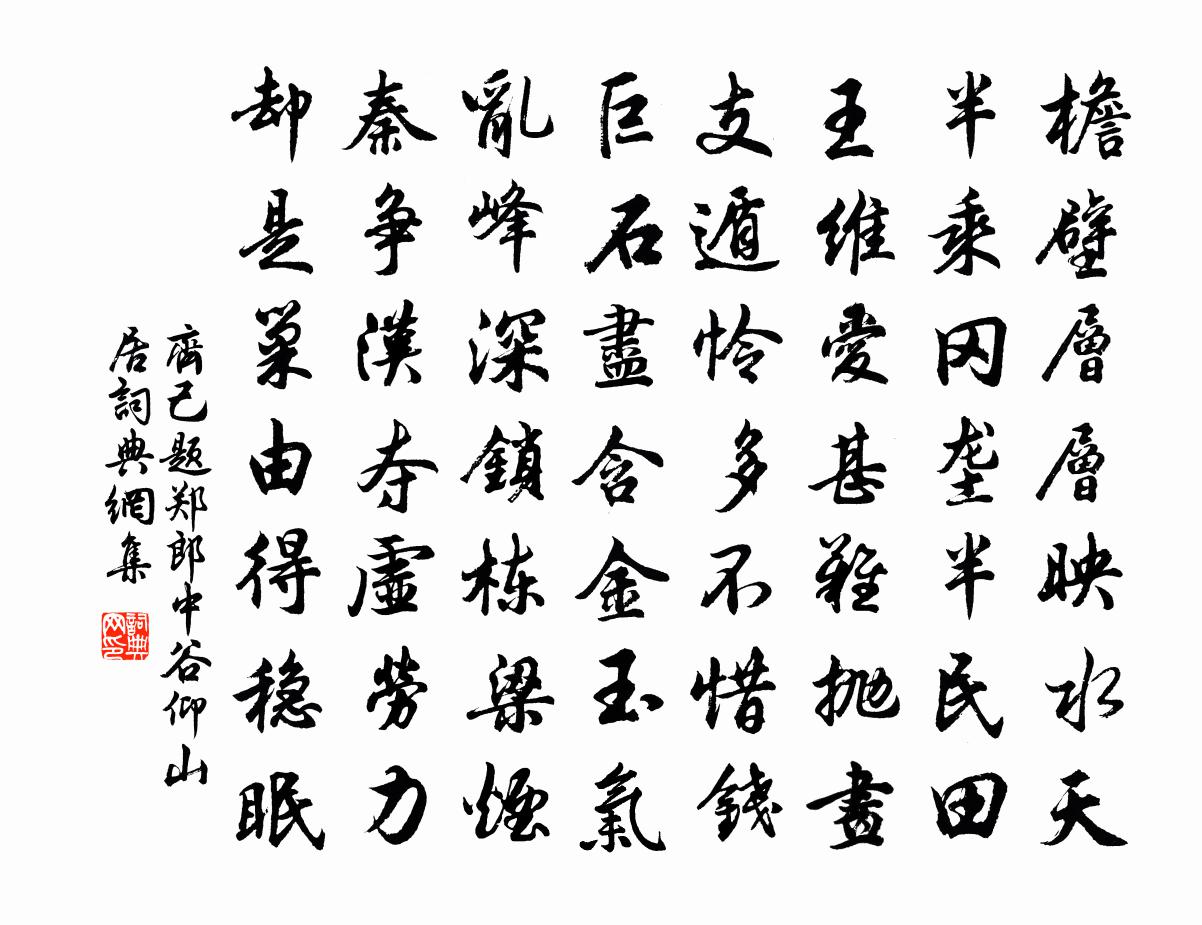 檐壁層層映水天
半乘冈垄半民田
王維愛甚難抛畫
支遁怜多不惜錢
巨石盡含金玉氣
亂峰深鎖栋梁煙
秦争漢夺虚勞力
却是巢由得稳眠
齊己题郑郎中谷仰山
居詞典網集
詞典
网印